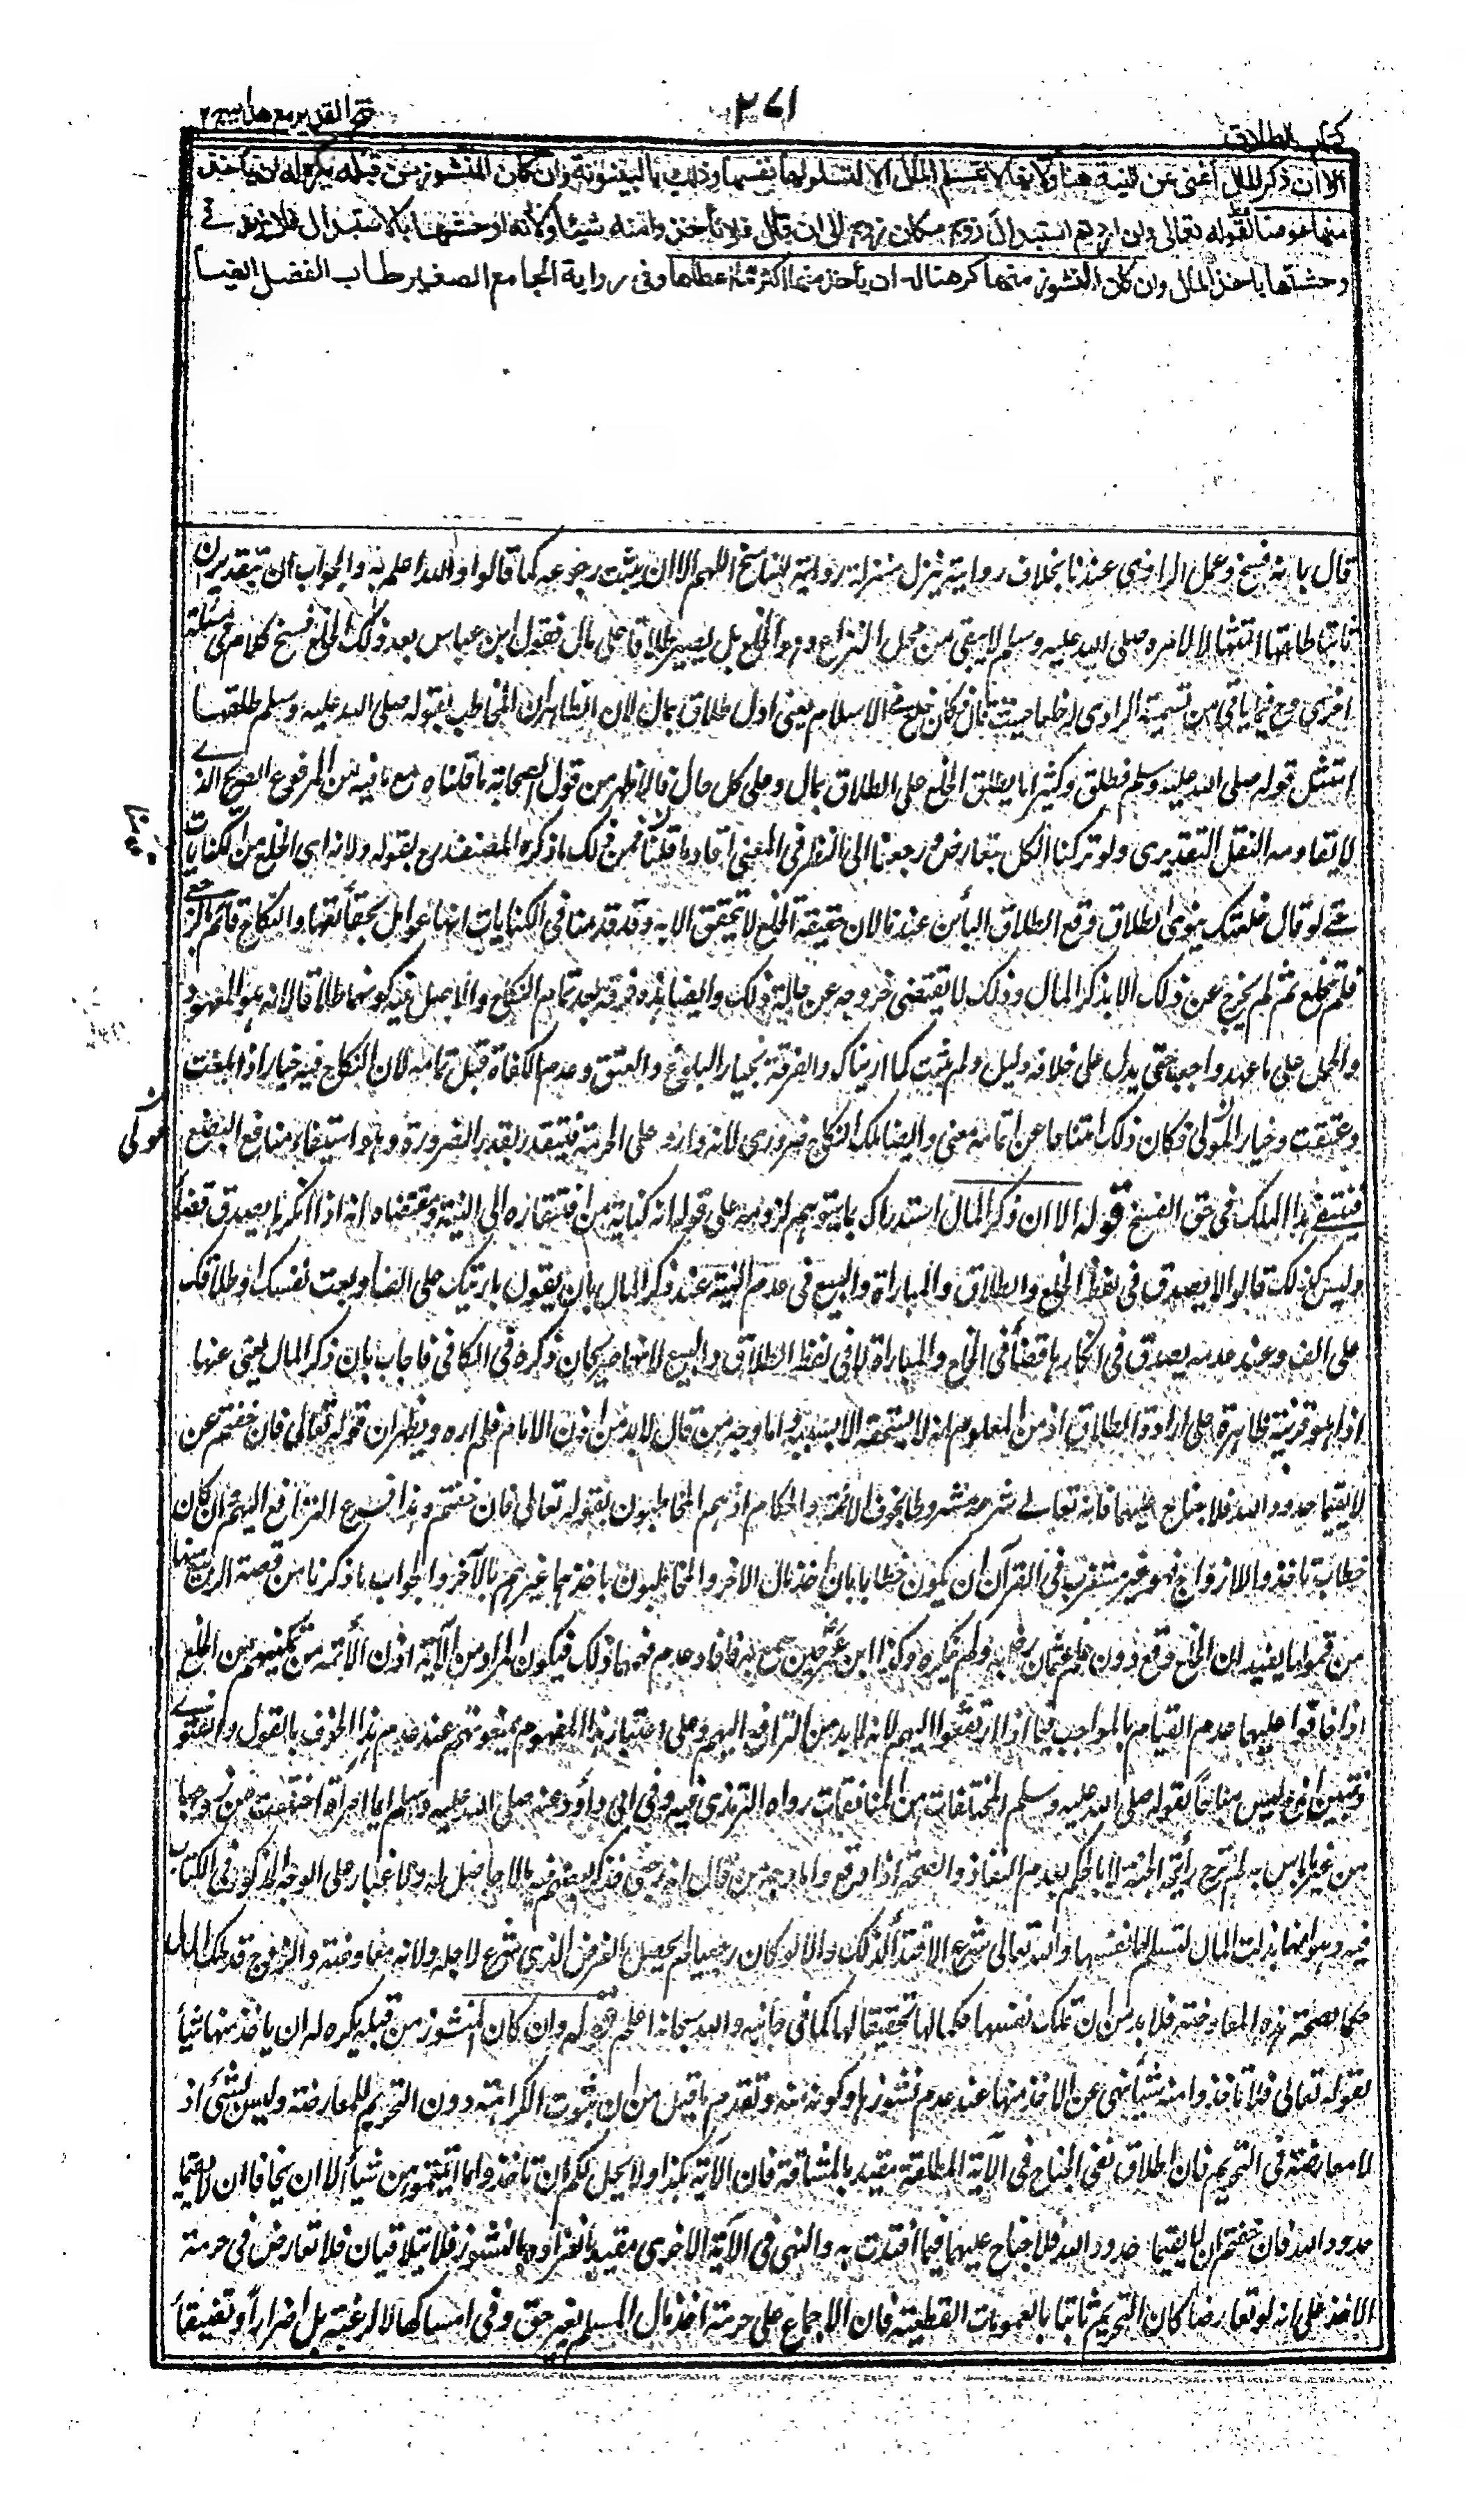 كتاب الطلاق
٢٧١
فتح القدير مع هداية ٢
الا ان ذكر المال أغنى عن النية هنا ولانها لا تتسلم المال الا لتسلم لها نفسها وذلك بالبينونة وان كان النشوز من قبله يكره له ان يأخذ
منها عوضا لقوله تعالى وان اردتم استبدال زوج مكان زوج الى ان قال فلا تأخذوا منه شيئا ولانه اوحشها بالاستبدال فلا يزيد في
وحشتها باخذ المال وان كان النشوز منها كرهنا له ان يأخذ منها اكثر مما اعطاها وفى رواية الجامع الصغير طاب الفضل ايضا
قال بانه فسخ وعمل الراوى عندنا بخلاف روايته ينزل منزلة رواية للناسخ اللهم الا ان يثبت رجوعه كما قالوا والله اعلم به والجواب ان بتقدير ان
ثابتا طلقها امتثالا لامره صلى الله عليه وسلم لا يبقى من محل النزاع وهو الخلع بل يصير طلاقا على مال فقول ابن عباس بعد ذلك الخلع فسخ كلام فى مسئلة
اخرى مع فيما يأتى من تسمية الراوى له خلعا حيث قال فكان خلع فى الاسلام يعنى اول طلاق بمال لان الظاهر ان المخاطب بقوله صلى الله عليه وسلم طلقها
امتثل قوله صلى الله عليه وسلم فطلق وكثيرا ما يطلق الخلع على الطلاق بمال وعلى كل حال فالاظهر من قول الصحابة ما قلناه مع ما فيه من المرفوع الصحيح الذى
لا يقاومه النقل التقديرى ولو تركنا الكل بتعارض ورجعنا الى النظر فى المعنى افاد ما قلنا فمن ذلك ما ذكره المصنف رح بقوله ولانه اى الخلع من الكنايات
حتى لو قال خلعتك ينوى الطلاق وقع الطلاق البائن عندنا لان حقيقة الخلع لا تتحقق الا به وقد قدمنا فى الكنايات انها عوامل بحقائقها والنكاح قائم
فلم تخلع ثم لم يخرج عن ذلك الا بذكر المال وذلك لا يقتضى خروجه عن حالته ذلك وايضا هذه فرقة بعد تمام النكاح والاصل فيه كونها طلاقا لانه هو المعهود
والحمل على ما عهد واجب حتى يدل على خلافه دليل ولم يثبت كما اريناك والفرقة بخيار البلوغ والعتق وعدم الكفاءة قبل تمامه لان النكاح فيه خيار اذا بلغت
وعتقت وخيار المولى فكان ذلك امتناعا عن اتمامه معنى وايضا ملك النكاح ضرورى لانه وارد على الحرة فيتقدر بقدر الضرورة وهو استيفاء منافع البضع
مولى
فينتفى هذا الملك فى حق الفسخ قوله الا ان ذكر المال استدراك ما يتوهم لزومه على قوله انه كناية من افتقاره الى النية ومقتضاه انه اذا انكرها يصدق قضاء
وليس كذلك قالوا لا يصدق فى لفظ الخلع والطلاق والمباراة والبيع فى عدم النية عند ذكر المال بان يقول باريتك على الف او بعت نفسك او طلاقك
على الف وعند عدمه يصدق فى انكارها قضاء فى الخلع والمباراة لا فى لفظ الطلاق والبيع لانها صريحان ذكره فى الكافى فاجاب بان ذكر المال يغنى عنها
اذ هو قرينة ظاهرة على ارادة الطلاق اذ من المعلوم انه لا يستحقه الا بسببه واما وجه من قال لا بد من اذن الامام فلم اره ويظهر ان قوله تعالى فان خفتم عن
لا يقيما حدود الله فلا جناح عليهما فانه تعالى شرعه مشروطا بخوف الائمة والحكام اذ هم المخاطبون بقوله تعالى فان خفتم وهذا فرع الترافع اليهم ان كان
خطاب تاخذوا للازواج فهو غير مستغرب فى القرآن ان يكون خطابا بان اخذ مال الاخر والمخاطبون باخذهما غيرهم بالآخر والجواب ما ذكرنا من قصة الربيع
من قولها يفيد ان الخلع وقع دون علم عثمان رض به ولم ينكره وكذا ابن عمر حين سمع به فافاد عدم فهمها ذلك فيكون المراد من الآية اذن الأئمة من تمكينهم من الخلع
اذا خافوا عليهما عدم القيام بالمواجب فيما اذا ارتفعوا اليهم لانه لا بد من الترافع اليهم وعلى اعتبار هذا المفهوم يمنعونهم عند عدم هذا الخوف بالقول والفتوى
وليس منافا لقوله صلى الله عليه وسلم المختلعات من المنافقات رواه الترمذى فيه وفى ابى داود عنه صلى الله عليه وسلم ايما امرأة اختلعت من زوجها
من غير باس به لم ترح رائحة الجنة لا بالحكم بعدم النفاذ والصحة اذا وقع واما وجه من قال انه رجعى فذكر بعضهم فيه ما لا حاصل له ولا غبار على الوجه المذكور فى الكتاب
فيه وهو انها بذلت المال لتسلم لها نفسها والله تعالى شرع الافتداء لذلك والا لو كان رجعيا لم يحصل الغرض الذى شرع لاجله ولانه معاوضة والزوج قد ملك المال
حكما بصحة هذه المعاوضة فلا بد من ان تملك نفسها حكما لها تحقيقا لها كما فى جانبه والله سبحانه اعلم قوله وان كان النشوز من قبله يكره له ان ياخذ منها شيأ
لقوله تعالى فلا تاخذوا منه شيأ نهى عن الاخذ منها عند عدم نشوزها وكونه منه وتقدم ما قيل من ان ثبوت الكراهة دون التحريم للمعارضة وليس بشئ اذ
لا معارضة فى التحريم فان اطلاق نفى الجناح فى الآية المطلقة مقيد بالمشاقة فان الآية هكذا ولا يحل لكم ان تأخذوا مما آتيتموهن شيأ الا ان يخافا ان لا يقيما
حدود الله فان خفتم ان لا يقيما حدود الله فلا جناح عليهما فيما افتدت به والنهى فى الآية الاخرى مقيد بانفراده بالنشوز فلا يتلاقيان فلا تعارض فى حرمة
الاخذ على انه لو تعارضا كان التحريم ثابتا بالعمومات القطعية فان الاجماع على حرمة اخذ مال المسلم بغير حق وفى امساكها لا لرغبة بل اضرارا وتضييقا